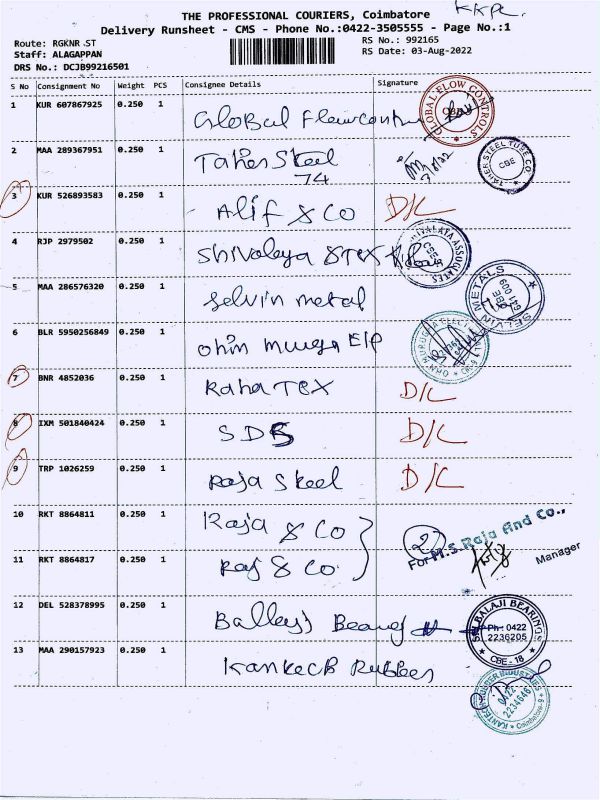 KKPL.
THE PROFESSIONAL COURIERS, Coimbatore
Delivery Runsheet - CMS - Phone No.:0422-3505555 - Page No.:1
Route: RGKNR ST
RS No.: 992165
Staff: ALAGAPPAN
RS Date: 03-Aug-2022
DRS No.: DCJB99216501
S No Consignment No Weight PCS Consignee Details Signature
1 KUR 607867925 0.250 1 Global Flowcontr GLOBAL FLOW CONTROLS CBE
2 MAA 289367951 0.250 1 Taher Steel TAHER STEEL TUBE CO. CBE
74 3/8/22
3 KUR 526893583 0.250 1 Alif & Co D/L
4 RJP 2979502 0.250 1 Shivalaya STEX SHIVALAYA ASSOCIATES CBE
5 MAA 286576320 0.250 1 Selvin metal SELVIN METALS CBE 641 009
6 BLR 5950256849 0.250 1 Ohm Muruga E/P
7 BNR 4852036 0.250 1 Raha TEX D/L
8 IXM 501840424 0.250 1 SDS D/L
9 TRP 1026259 0.250 1 Raja Steel D/L
10 RKT 8864811 0.250 1 Raja & Co 2 For M.S.Raja And Co.,
11 RKT 8864817 0.250 1 Raj & Co Manager
12 DEL 528378995 0.250 1 Balleys Bearng SRI BALAJI BEARINGS Ph: 0422 2236205 CBE - 18
13 MAA 290157923 0.250 1 Kantech Rubber KANTECH RUBBER INDUSTRIES 0422 2234646 Coimbatore-9